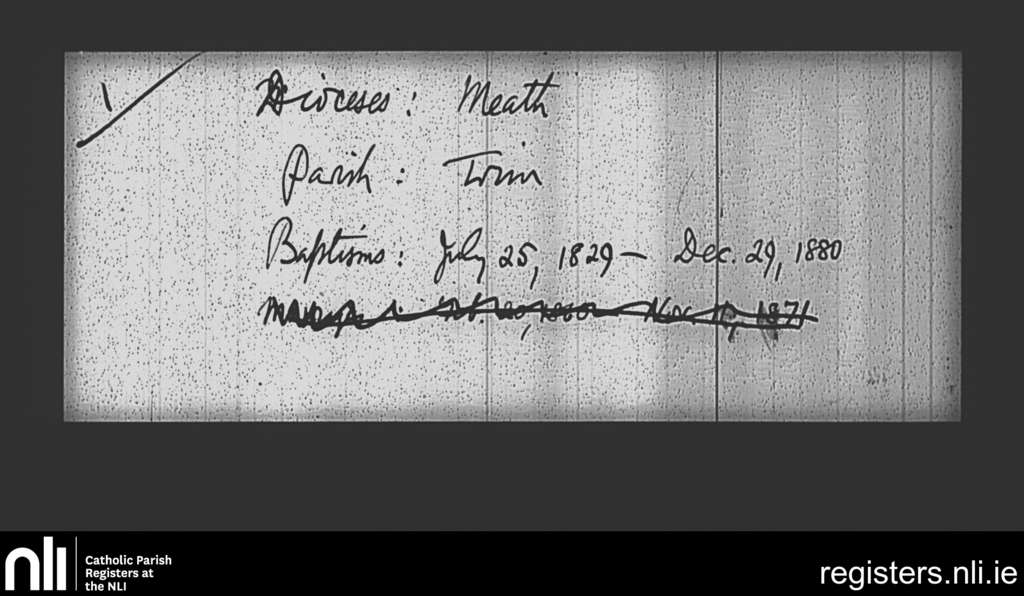 1
Dioceses: Meath
Parish: Trim
Baptisms: July 25, 1829 – Dec. 29, 1880
Nov. 1871
nli
Catholic Parish
Registers at
the NLI
registers.nli.ie